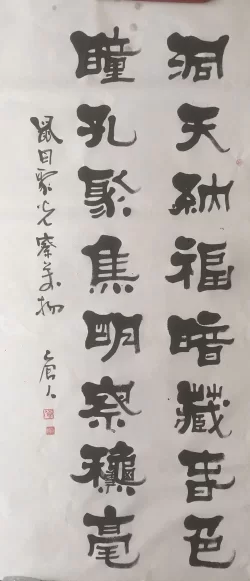 洞天納福暗藏春色
瞳孔聚焦明察穐毫
鼠目聚光察萬物